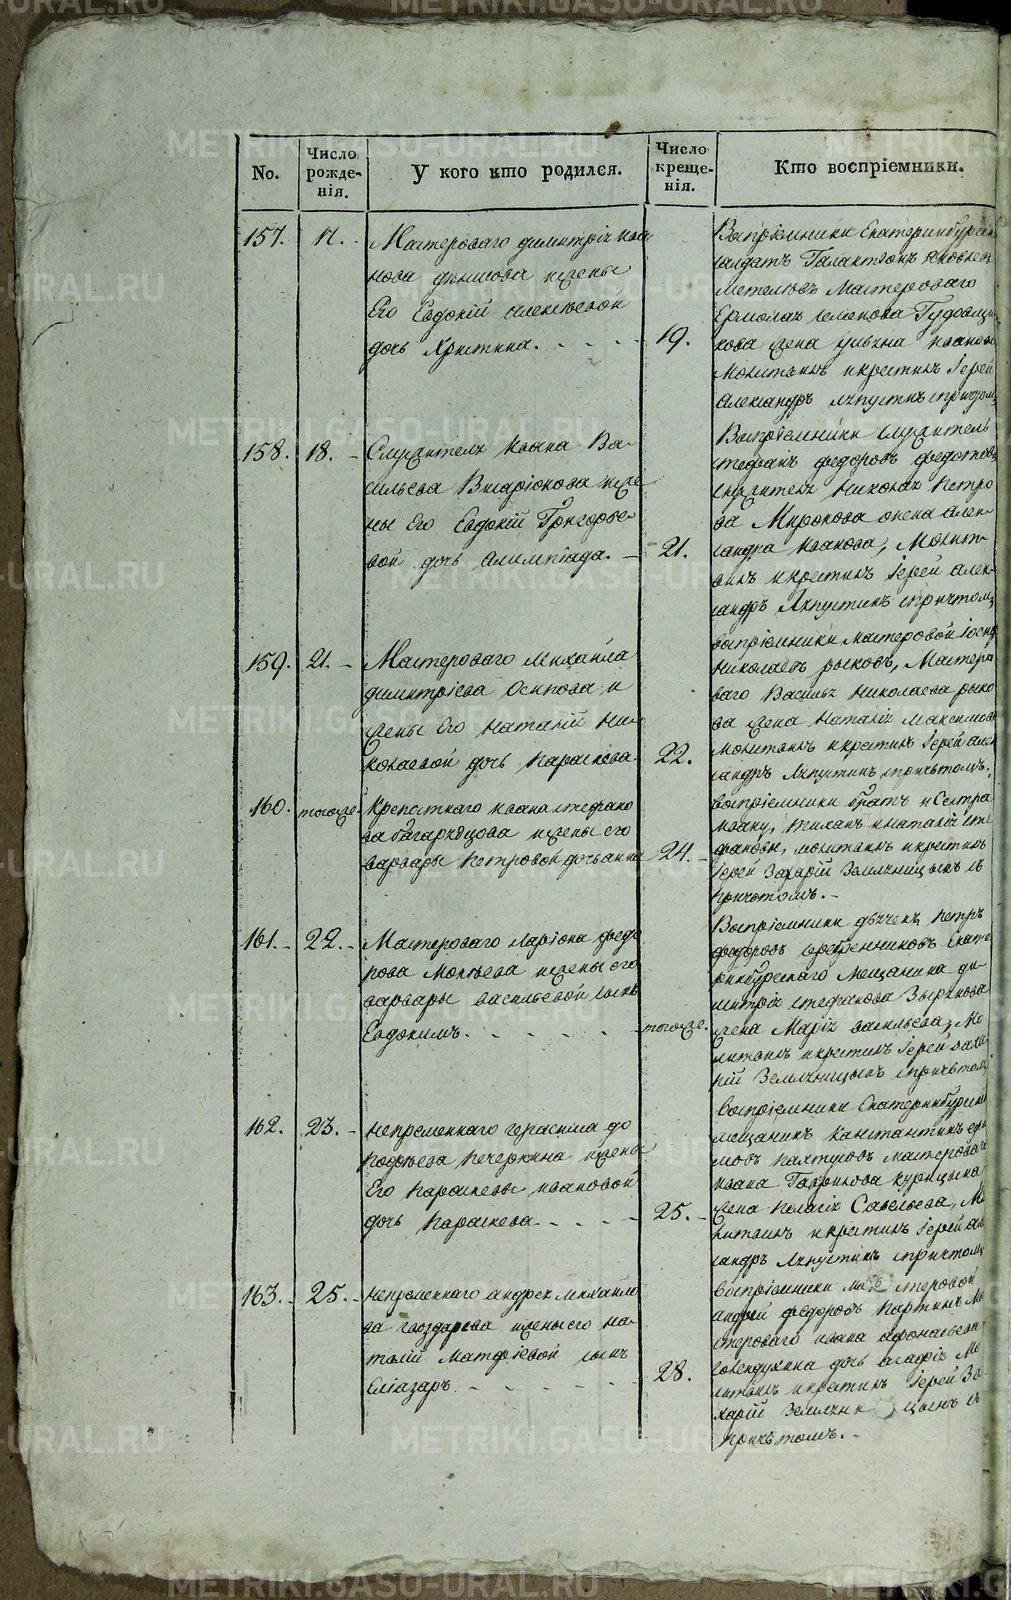 METRIKI.GASO-URAL.RU
No.
Число рожде-нія.
У кого кто родился.
Число креще-нія.
Кто воспріемники.
157.
17.
Мастероваго димитрія Ива
нова денисова ижены
Его Евдокіи алексѣевой
дочь Христина.
19.
Воспріемники Екатеринбургск
солдатъ Галактіонъ Яковлевъ
Мастероваго
Ермолая семенова
кова жена иванова
Молитвилъ икрестилъ Іерей
Александръ Ляпустинъ спричтом
158.
18.
Служителя Ивана Ва-
сильева иже
ны Его Евдокіи Григорье-
вой дочь Олимпіада.
21.
Воспріемники служитель
стефанъ федоровъ федотовъ
служителя Николая Петро
ва Миронова жена алек-
сандра Иванова, Молит-
вилъ икрестилъ Іерей алек-
сандръ Ляпустинъ спричтомъ
159.
21.
Мастероваго Михаила
димитріева Осипова и
жены Его Наталіи Ни-
колаевой дочь Параскева
22.
воспріемники мастеровой
Николаевъ рыковъ, Мастеро
ваго Василья Николаева рыко
ва жена Наталія Максимова
молитвилъ икрестилъ Іерей алек
сандръ Ляпустинъ спричьтомъ.
160.
тогоже.
Крепостнаго ивана стефано
ва ижены его
варвары Петровой дочь анна
24.
воспріемники братъ и Сестра
инаталія сте
фановы, молитвилъ икрестилъ
Іерей Захарій Земляницынъ съ
причьтомъ.
161.
22.
Мастероваго ларіона федо
рова ижены его
варвары васильевой сынъ
Евдокимъ.
тогоже.
Воспріемники Петръ
федоровъ серебренниковъ екате
ринбургскаго Мещанина ди-
митрія стефанова Зырянова
жена Марія васильева, Мо
литвилъ икрестилъ Іерей заха
рій Земляницынъ спричьтом
162.
23.
непременнаго герасима до
рофѣева Печеркина ижены
Его Параскевы ивановой
дочь Параскева
25.
воспріемники Екатеринбургски
мещанинъ Канстантинъ
мовъ Палтусовъ мастероваго
ивана Гаврилова курицына
жена Пелагія Савельева, Мо
литвилъ икрестилъ Іерей алек
сандръ Ляпустинъ спричтом
163.
25.
непременнаго андрея михайло
ва гвоздарева ижены его на-
таліи Матфіевой сынъ
Еліазаръ
28.
воспріемники мастеровой
андрей федоровъ Партинъ Ма
стероваго ивана афонасьева
дочь агафія Мо
литвилъ икрестилъ Іерей За
харій Земляницынъ съ
причьтомъ.